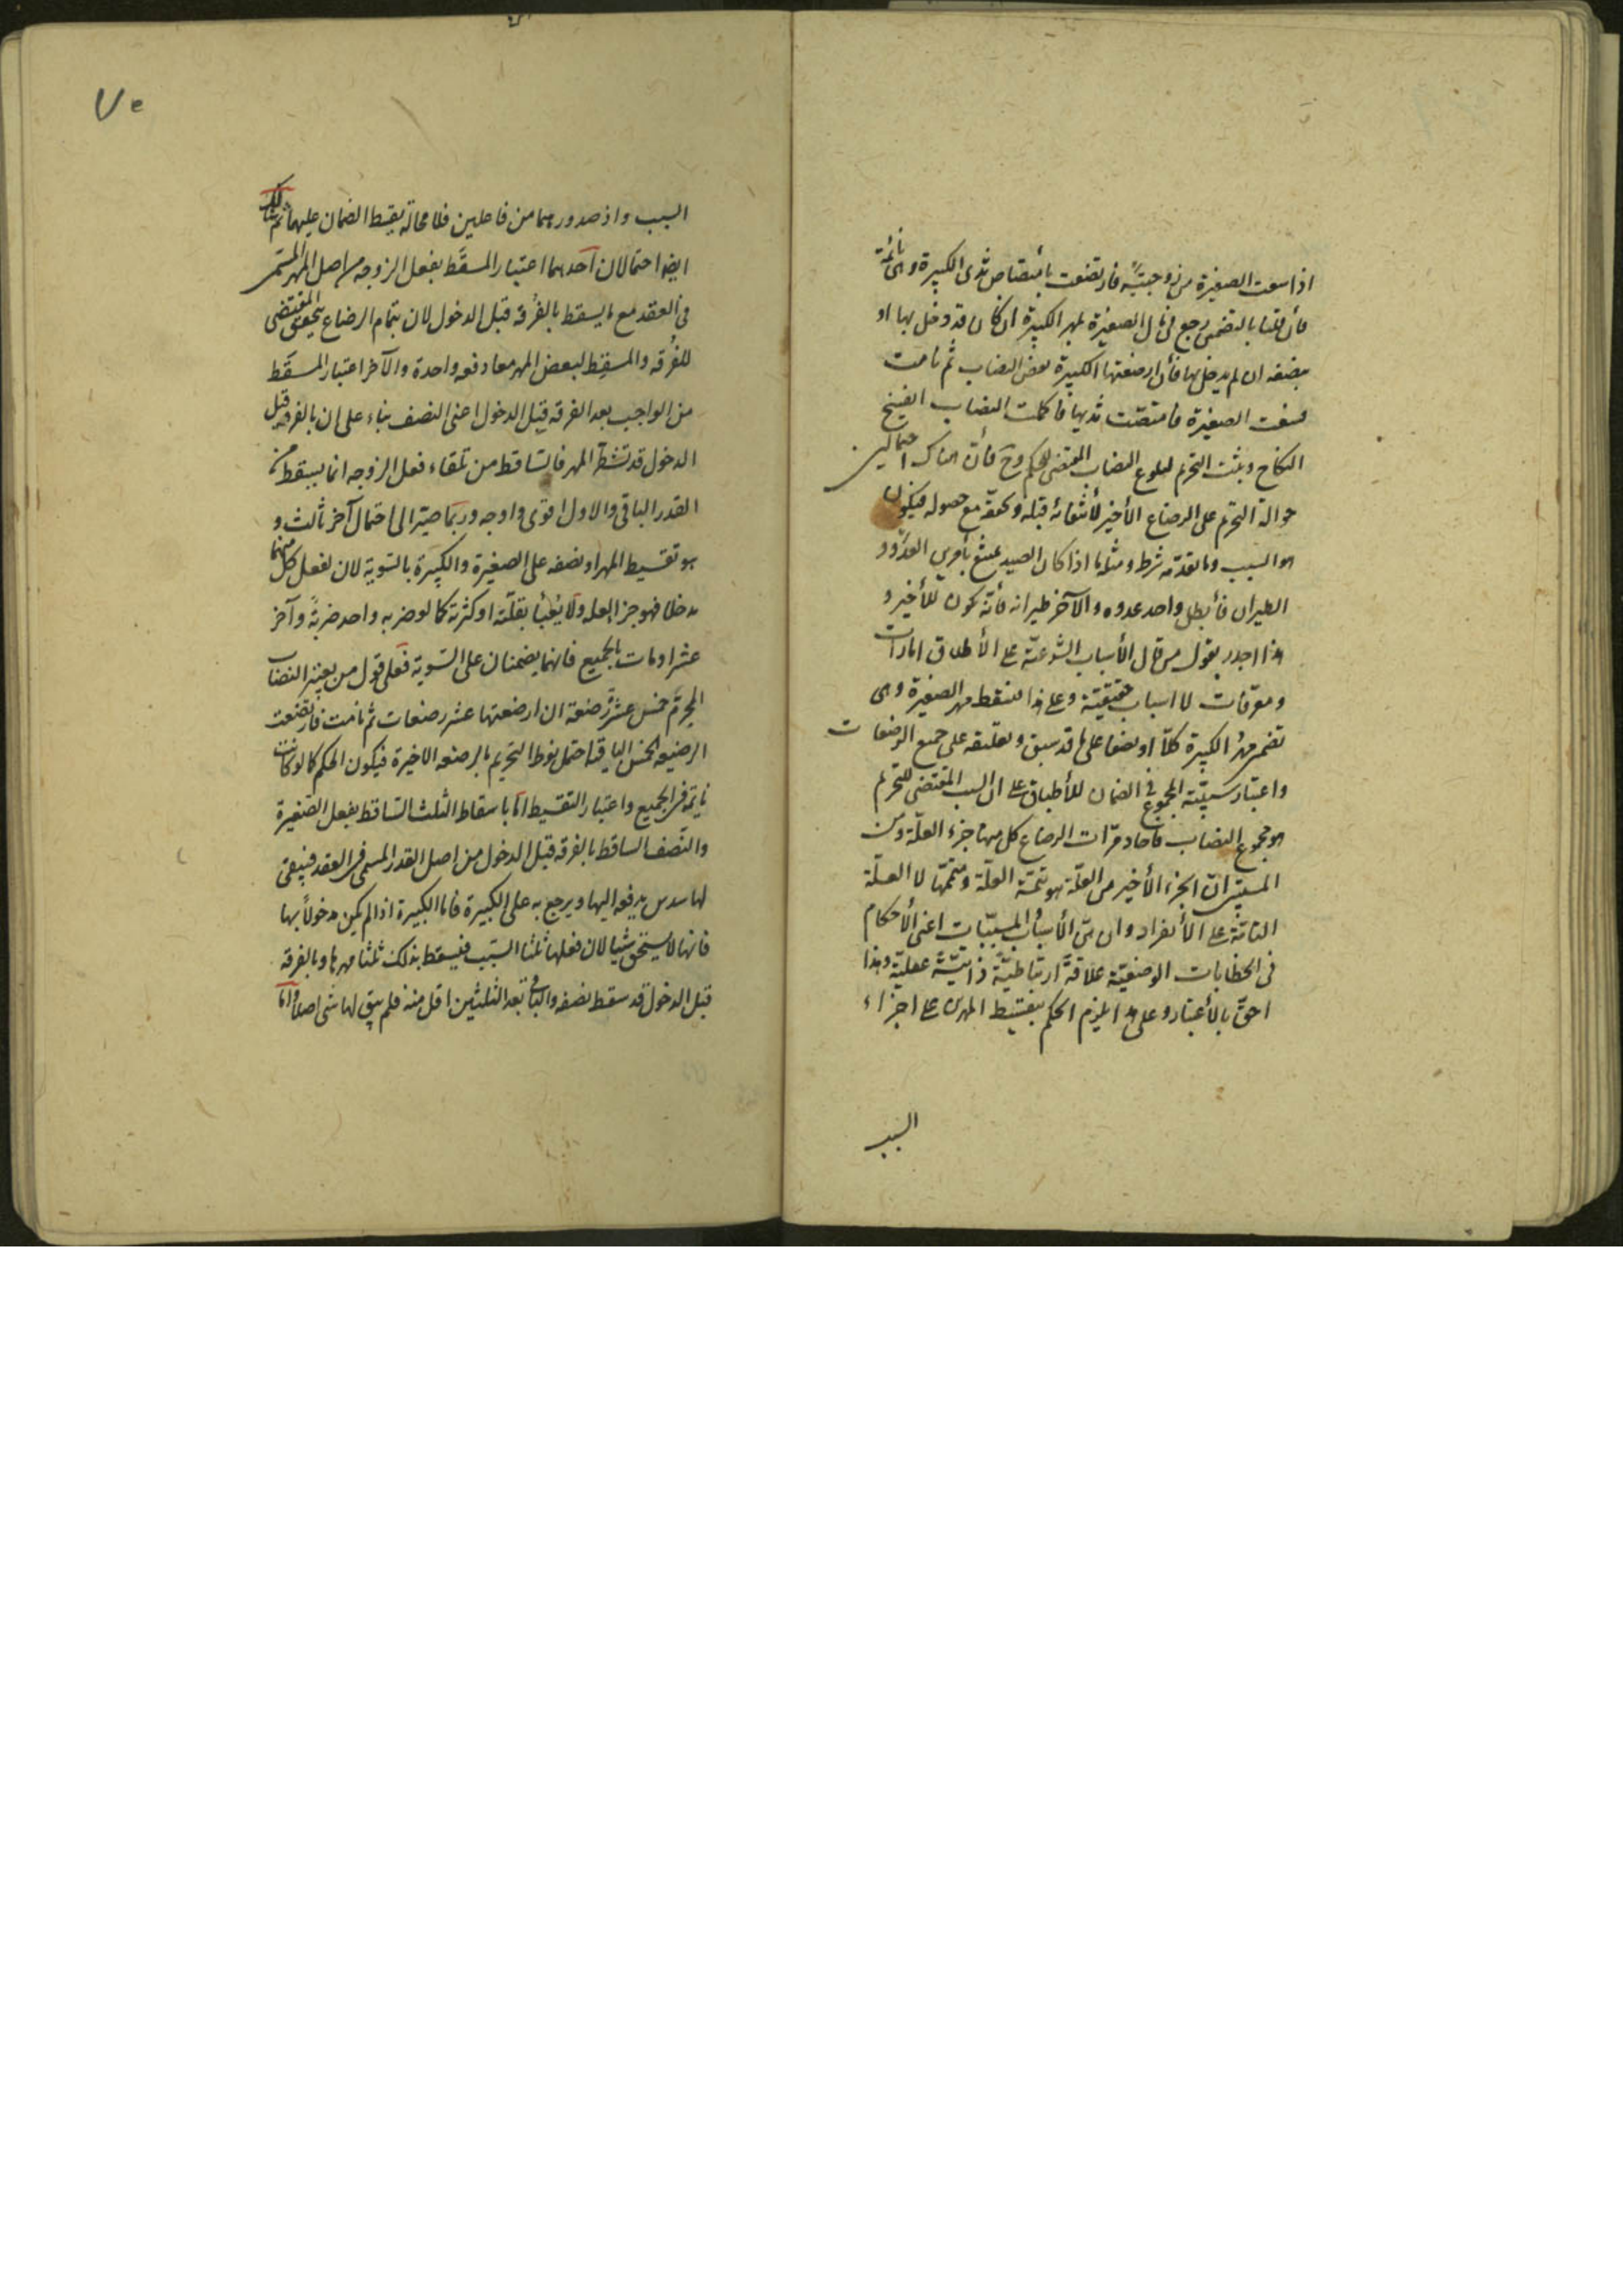 اذا سعت الصغيرة من زوجتيه فارتضعت بامتصاص ثدى الكبيرة وهى نائمة
فان قلنا بالتضمين رجع فى مال الصغيرة بمهر الكبيرة ان كان قد دخل بها او
بنصفه ان لم يدخل بها فأن ارضعتها الكبيرة بعض النصاب ثم نامت
فسعت الصغيرة فامتصت ثديها فاكملت النصاب انفسخ
النكاح ويثبت التحريم لبلوغ النصاب المقتضى للحكم وح فأن هناك احتمالين
حوالة التحريم على الرضاع الأخير لأنتفائه قبله وتحققه مع حصوله فيكون
هو السبب وما تقدمه شرط ومثلها اذا كان الصيد يمتنع بأمرين العدو و
الطيران فأبطل واحد عدوه والآخر طيرانه فأنه يكون للأخير و
هذا اجدر بقول من قال الأسباب الشرعية على الأطلاق امارات
ومعرفات لا اسباب حقيقية وعلى هذا فيسقط مهر الصغيرة وهى
تضمن مهر الكبيرة كلا او بعضا على ما قد سبق وتعليقه على جميع الرضعات
واعتبار سببية المجموع فى الضمان للأطباق على ان السبب المقتضى للتحريم
هو مجموع النصاب فآحاد مرات الرضاع كل منها جزء العلة ومن
المستبين ان الجزء الأخير من العلة هو تتمة العلة ومتممها لا العلة
التامة على الأنفراد وان بين الأسباب والمسببات اعنى الأحكام
فى الخطابات الوضعية علاقة ارتباطية ذاتية عقلية وهذا
احق بالأعتبار وعلى هذا يلزم الحكم بتقسيط المهرين على اجزاء
السبب
السبب واذ صدورهما من فاعلين فلا محالة يقسط الضمان عليهما ثم هنالك
ايضا احتمالان احدهما اعتبار المسقط بفعل الزوجه من اصل المهر المسمى
فى العقد مع ما يسقط بالفرقه قبل الدخول لان بتمام الرضاع يتحقق المقتضى
للفرقه والمسقط لبعض المهر معا دفعه واحدة والآخر اعتبار المسقط
من الواجب بعد الفرقه قبل الدخول اعنى النصف بناء على ان بالفرقه قبل
الدخول قد تشطر المهر فالساقط من تلقاء فعل الزوجه انما يسقط من
القدر الباقى والاول اقوى واوجه وربما صير الى احتمال آخر ثالث و
هو تقسيط المهر او نصفه على الصغيرة والكبيرة بالتسوية لان لفعل كل منهما
مدخلا فهو جزء العله ولا يعبأ بقلته او كثرته كما لو ضربه واحد ضربة وآخر
عشرا ومات بالجميع فانهما يضمنان على السوية فعلى قول من يعتبر النصاب
المحرم خمس عشر رضعة ان ارضعتها عشر رضعات ثم نامت فارتضعت
الرضيعه الخمس الباقية احتمل نوط التحريم بالرضعه الاخيرة فيكون الحكم كما لو كانت
نايمة فى الجميع واعتبار التقسيط اما باسقاط الثلث الساقط بفعل الصغيرة
والنصف الساقط بالفرقه قبل الدخول من اصل القدر المسمى فى العقد فيبقى
لها سدس يدفعه اليها ويرجع به على الكبيرة فاما الكبيرة اذا لم يكن مدخولا بها
فانها لا يستحق شيا لان فعلها ثلثا السبب فيسقط بذلك ثلثا مهرها وبالفرقه
قبل الدخول قد سقط نصفه والباقى بعد الثلثين اقل منه فلم يبق لها شى اصلا واما